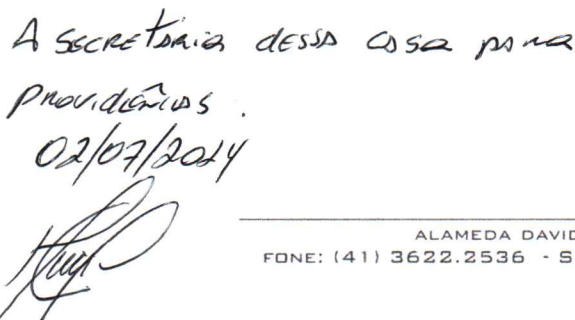 A SECRETÁRIA DESSA CASA PARA
PROVIDÊNCIAS.
02/07/2024
ALAMEDA DAVID
FONE: (41) 3622.2536 - S